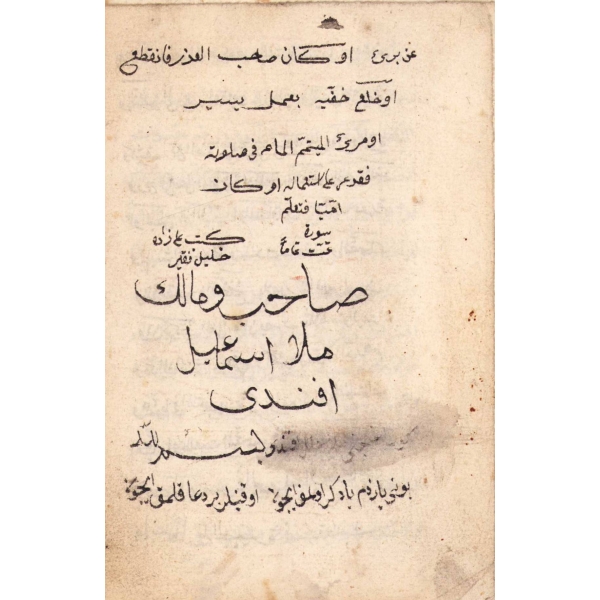 عن برئ او كان صاحب العذر فانقطع
او خلع خفيه بعمل يسير
او مرئ الميتمّم الماء فى صلوته
فقدر على استعماله او كان
اميّا فتعلّم
سورة
تمّت تماماً
كتب على زاده
خليل فقير
صاحب و مالك
ملا اسماعيل
افندى
بونى يازدم يادكر اولمق ايچون اوقيلن بر دعا قلمق ايچون